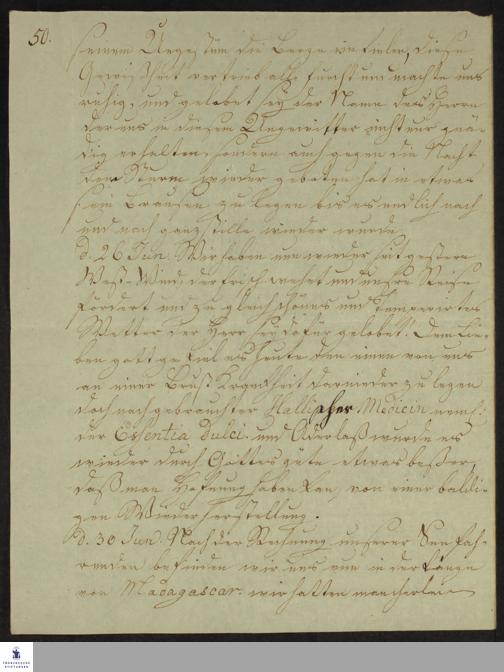 50.
seinem Ungestüm die Berge einfielen, diese
Gewisheit vertrieb alle Furcht und machte uns
ruhig, und gelobet sey der Name des Herrn
der uns in diesem Ungewitter nicht nur gnä-
dig erhalten, sondern auch gegen die Nacht
dem Sturm wieder geboten hat in etwas
sein Brausen zu legen bis es endlich nach
und nach ganz stille wieder wurde.
d. 26 Jun. Wir haben nun wieder seit gestern
West-Wind, der frisch wehet und unsre Reise
fördert und zugleich schönes und temperirtes
Wetter der Herr sey dafür gelobet! Dem Lie-
ben Gott gefiel es heute den einen von uns
an einer Brust Kranckheit darnieder zu legen
doch nach gebrauchter Hallischer Medicin neml:
der Essentia Dulci und Aderlaß wurde es
wieder durch Gottes güte etwas beßer,
daß man Hofnung haben kan, von einer baldi-
gen Wiederherstellung.
d. 30 Jun. Nach der Rechnung unserer Seefah-
renden befinden wir uns nun in der Länge
von Madagascar. wir hatten mancherley
FRANCKESCHE STIFTUNGEN